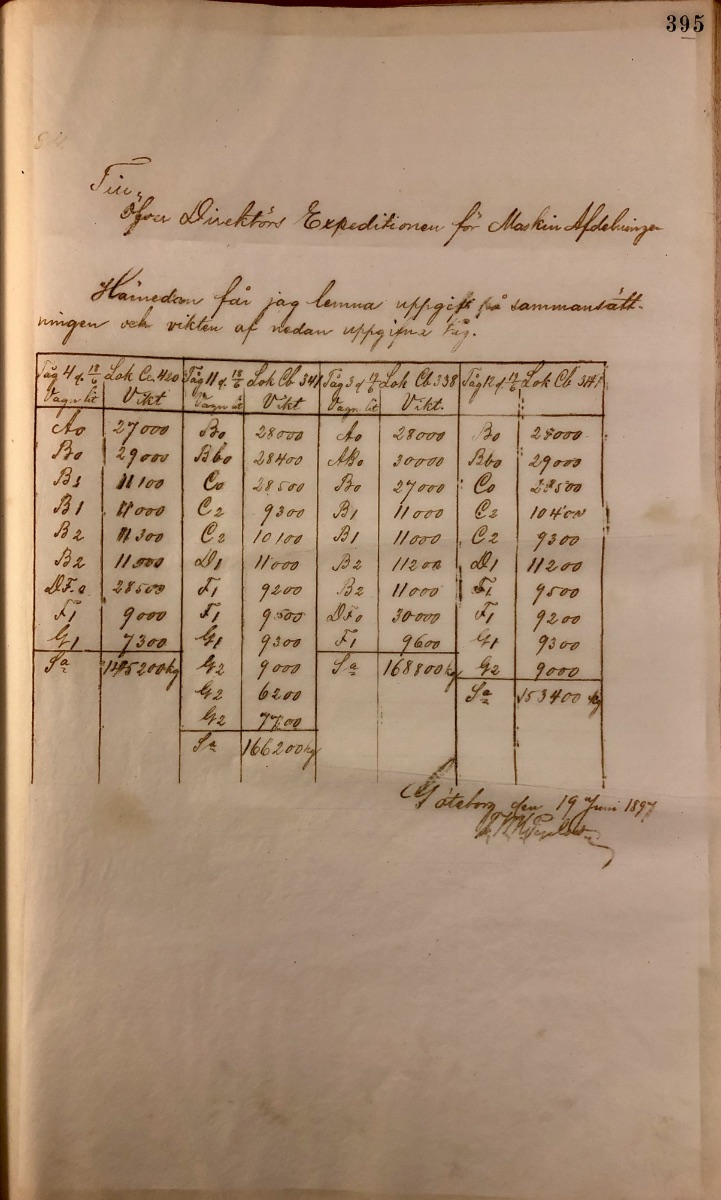 395
Till
Öfver Direktörs Expeditionen för Maskin Afdelningen
Härnedan får jag lemna uppgift på sammansätt-
ningen och vikten af nedan uppgifna tåg.
Tåg 4 d. 18/6 Lok Cc 420 Tåg 11 d. 18/6 Lok Cb 341 Tåg 3 d 19/6 Lok Cb 338 Tåg 12 d 19/6 Lok Cb 341
Vagn lit Vikt Vagn lit Vikt Vagn lit Vikt.
Ao 27000 Bo 28000 Ao 28000 Bo 28000
Bo 29000 Bbo 28400 ABo 30000 Bbo 29000
B1 11100 Co 28500 Bo 27000 Co 28500
B1 11000 C2 9300 B1 11000 C2 10400
B2 11300 C2 10100 B1 11000 C2 9300
B2 11000 D1 11000 B2 11200 D1 11200
DFo 28500 F1 9200 B2 11000 F1 9500
F1 9000 F1 9500 DFo 30000 F1 9200
G1 7300 G1 9300 F1 9600 G1 9300
Sa 165200kg G2 9000 Sa 168800kg G2 9000
G2 6200 Sa 153400 kg
G2 7700
Sa 166200kg
Göteborg den 19 Juni 1897